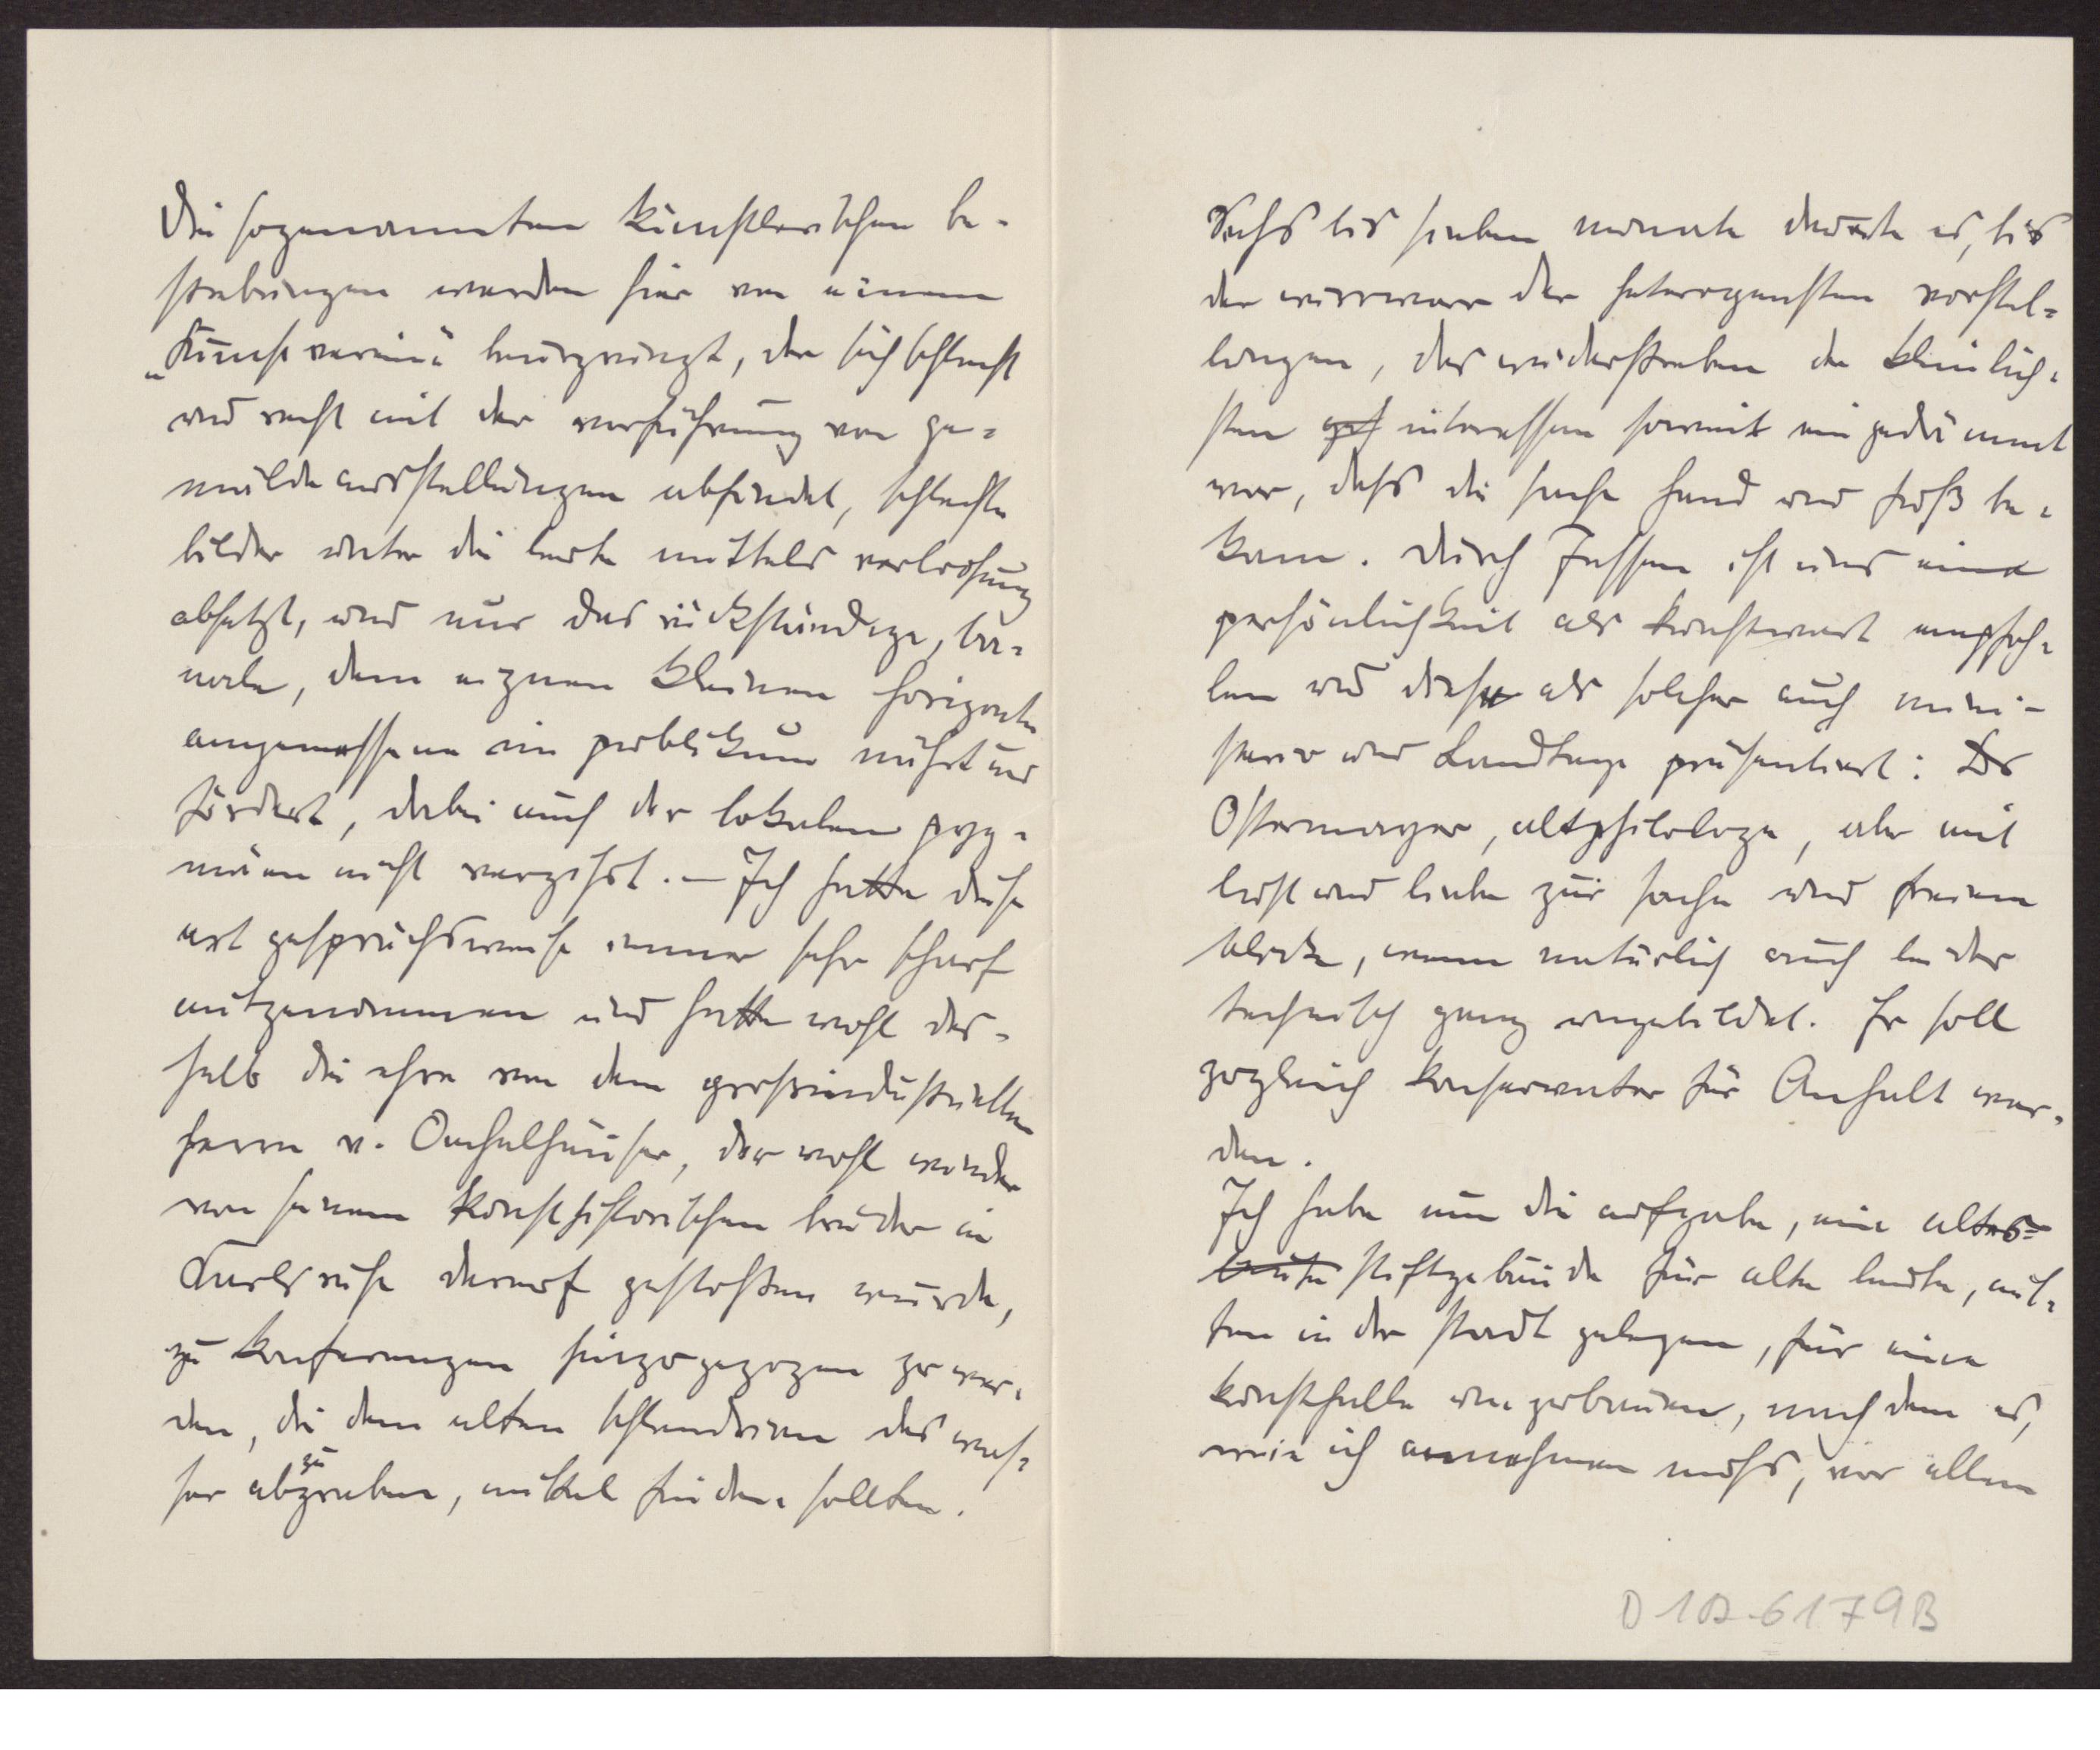 Die sogenannten künstlerischen be-
strebungen werden hier von einem
„Kunstverein“ bezwungen, der sich schlecht
und recht mit der vorführung von ge-
mäldeausstellungen abfindet, schlechte
bilder unter die leute mittels verlosung
absetzt, und nur das rückständige, ba-
nale, dem eignen kleinen horizonte
angemessene im publikum nährt und
fördert, dabei auch der lokalen pyg-
mäen nicht vergisst. – Ich hatte diese
art gesprächsweise immer sehr scharf
mitgenommen und hatte wohl des-
halb die ehre von dem grossindustriellen
herrn v. Oechelhäuser, der wohl wieder
von seinem kunsthistorischen bruder in
Karlsruhe darauf gestossen wurde,
zu konferenzen hinzugezogen zu wer-
den, die dem alten schlendrian das was-
ser abzugraben, mittel finden sollten.
Sechs bis sieben monate dauerte es, bis
der wirrwarr der heterogensten vorstel-
lungen, das widerstreben der kleinlich-
sten interessen soweit eingedämmt
war, dass die sache hand und fuß be-
kam. Durch Jessen ist uns eine
persönlichkeit als kunstwart empfoh-
len und diese als solcher auch mini-
sterio und Landtage präsentiert: Dr
Ostermayer, altphilologe, aber mit
lust und liebe zur sache und freiem
blicke, wenn natürlich auch leider
technisch ganz ungebildet. Er soll
zugleich konservator für Anhalt wer-
den.
Ich habe nun die aufgabe, ein altes
stiftgebäude für alte leute, mit-
ten in der stadt gelegen, für eine
kunsthalle umzubauen, nachdem es,
wie ich annehmen muss, vor allem
D 1A-6179B